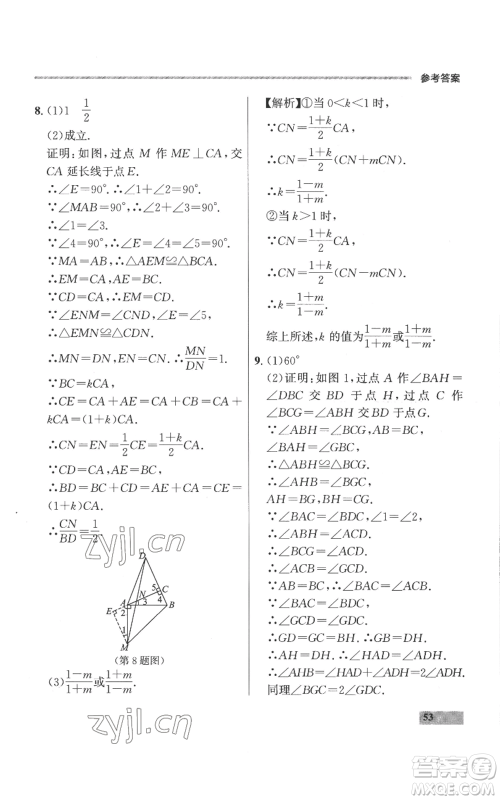 参考答案
8. (1)1　1/2
(2)成立.
证明:如图,过点 M 作 ME⊥CA,交
CA 延长线于点 E.
∴∠E=90°.∴∠1+∠2=90°.
∵∠MAB=90°,∴∠2+∠3=90°.
∴∠1=∠3.
∵∠4=90°,∴∠E=∠4.
∵MA=AB,∴△AEM≌△BCA.
∴EM=CA,AE=BC.
∵CD=CA,∴EM=CD.
∵∠ENM=∠CND,∠E=∠5,
∴△ENM≌△CND.
∴MN=DN,EN=CN.∴MN/DN=1.
∵BC=kCA,
∴CE=CA+AE=CA+BC=CA+
kCA=(1+k)CA.
∴CN=EN=1/2CE=(1+k)/2 CA.
∴BD=BC+CD=kCA+CA=
(1+k)CA.
∴CN/BD=1/2.
D
5 C
A N
4
3 B
E 2
1
M
(第 8 题图)
(3)(1-m)/(1+m)或(1+m)/(1-m)
【解析】①当 0<k<1 时,
∵CN=(1+k)/2 CA,
∴CA=(1+k)/2(CN+mCN).
∴k=(1-m)/(1+m).
②当 k>1 时,
∵CN=(1+k)/2 CA,
∴CA=(1+k)/2(CN-mCN).
∴k=(1+m)/(1-m).
综上所述,k 的值为(1-m)/(1+m)或(1+m)/(1-m).
9. (1)60°
(2)证明:如图 1,过点 A 作∠BAH=
∠DBC 交 BD 于点 H,过点 C 作
∠BCG=∠ABH 交 BD 于点G.
∵∠ABH=∠BCG,AB=BC,
∠BAH=∠CBG,
∴△ABH≌△BCG.
∴BH=CG,∠AHB=∠BGC,
AH=BG.
∵∠ABC=∠ABH+∠DBC,
∴∠ABC=∠ABH+∠BAH=∠AHD.
∵∠ABC=∠ACD,
∴∠AHD=∠ACD.
∵AB=BC,∴∠BAC=∠BCA.
∵∠BAC=∠BDC,
∴∠BDC=∠BCA.
∴∠BCD=∠CGD.∴CG=CD.
∴GD=GC=BH.∴BG=DH.
∴AH=DH.∴∠HAD=∠HDA.
∴∠AHB=∠HAD+∠ADH=2∠ADB.
同理∠BGC=2∠BDC.
53
zyjl.cn
zyjl.cn